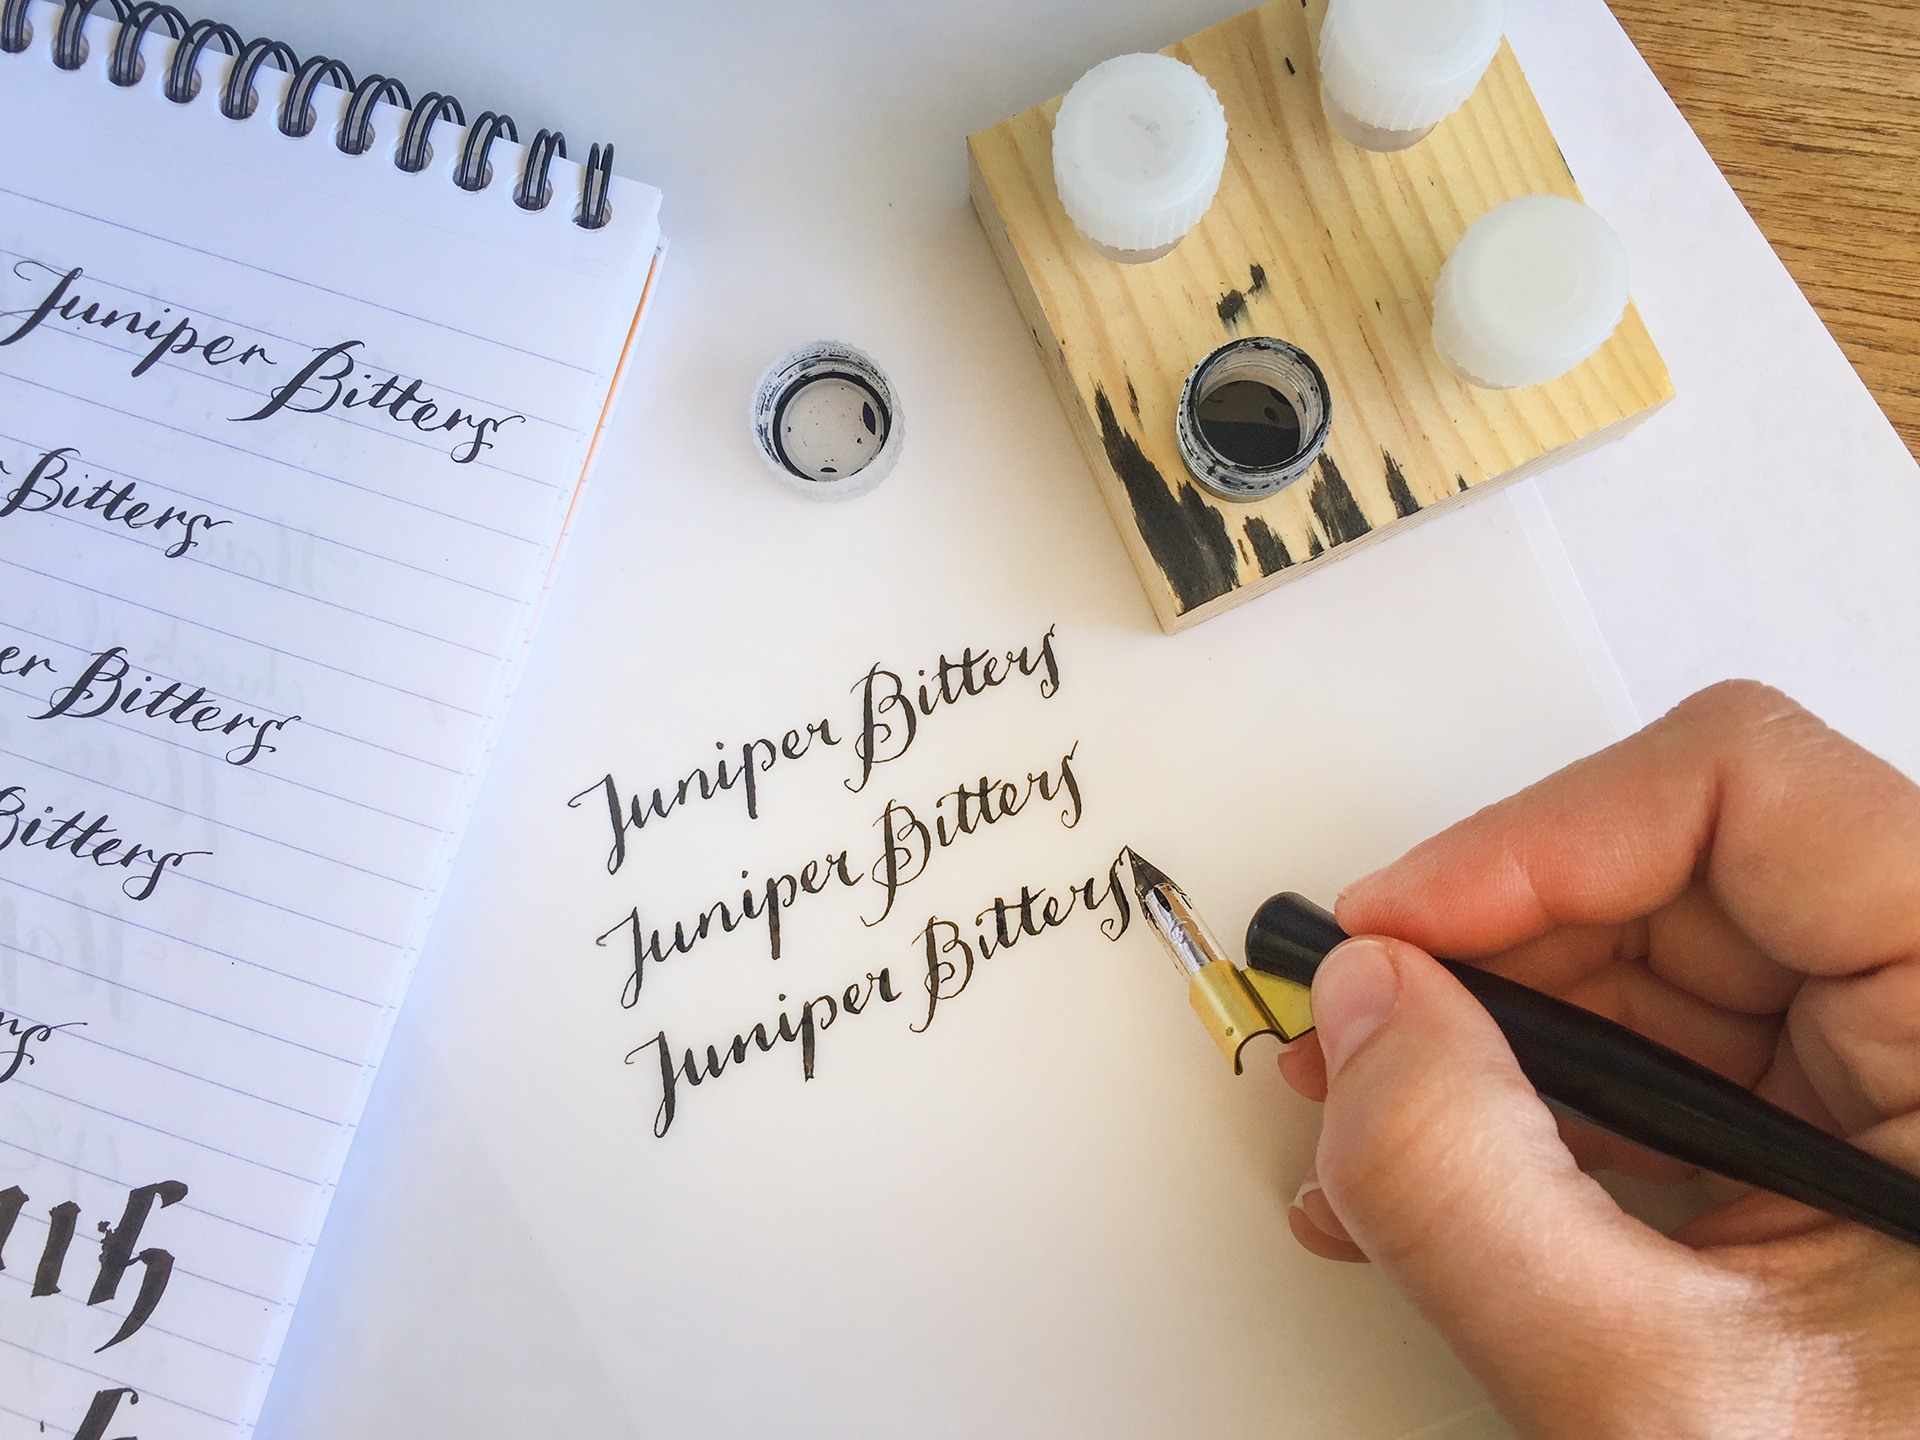 Juniper Bitters
Bitters
er Bitters
Bitters
Juniper Bitters
Juniper Bitters
Juniper Bitters